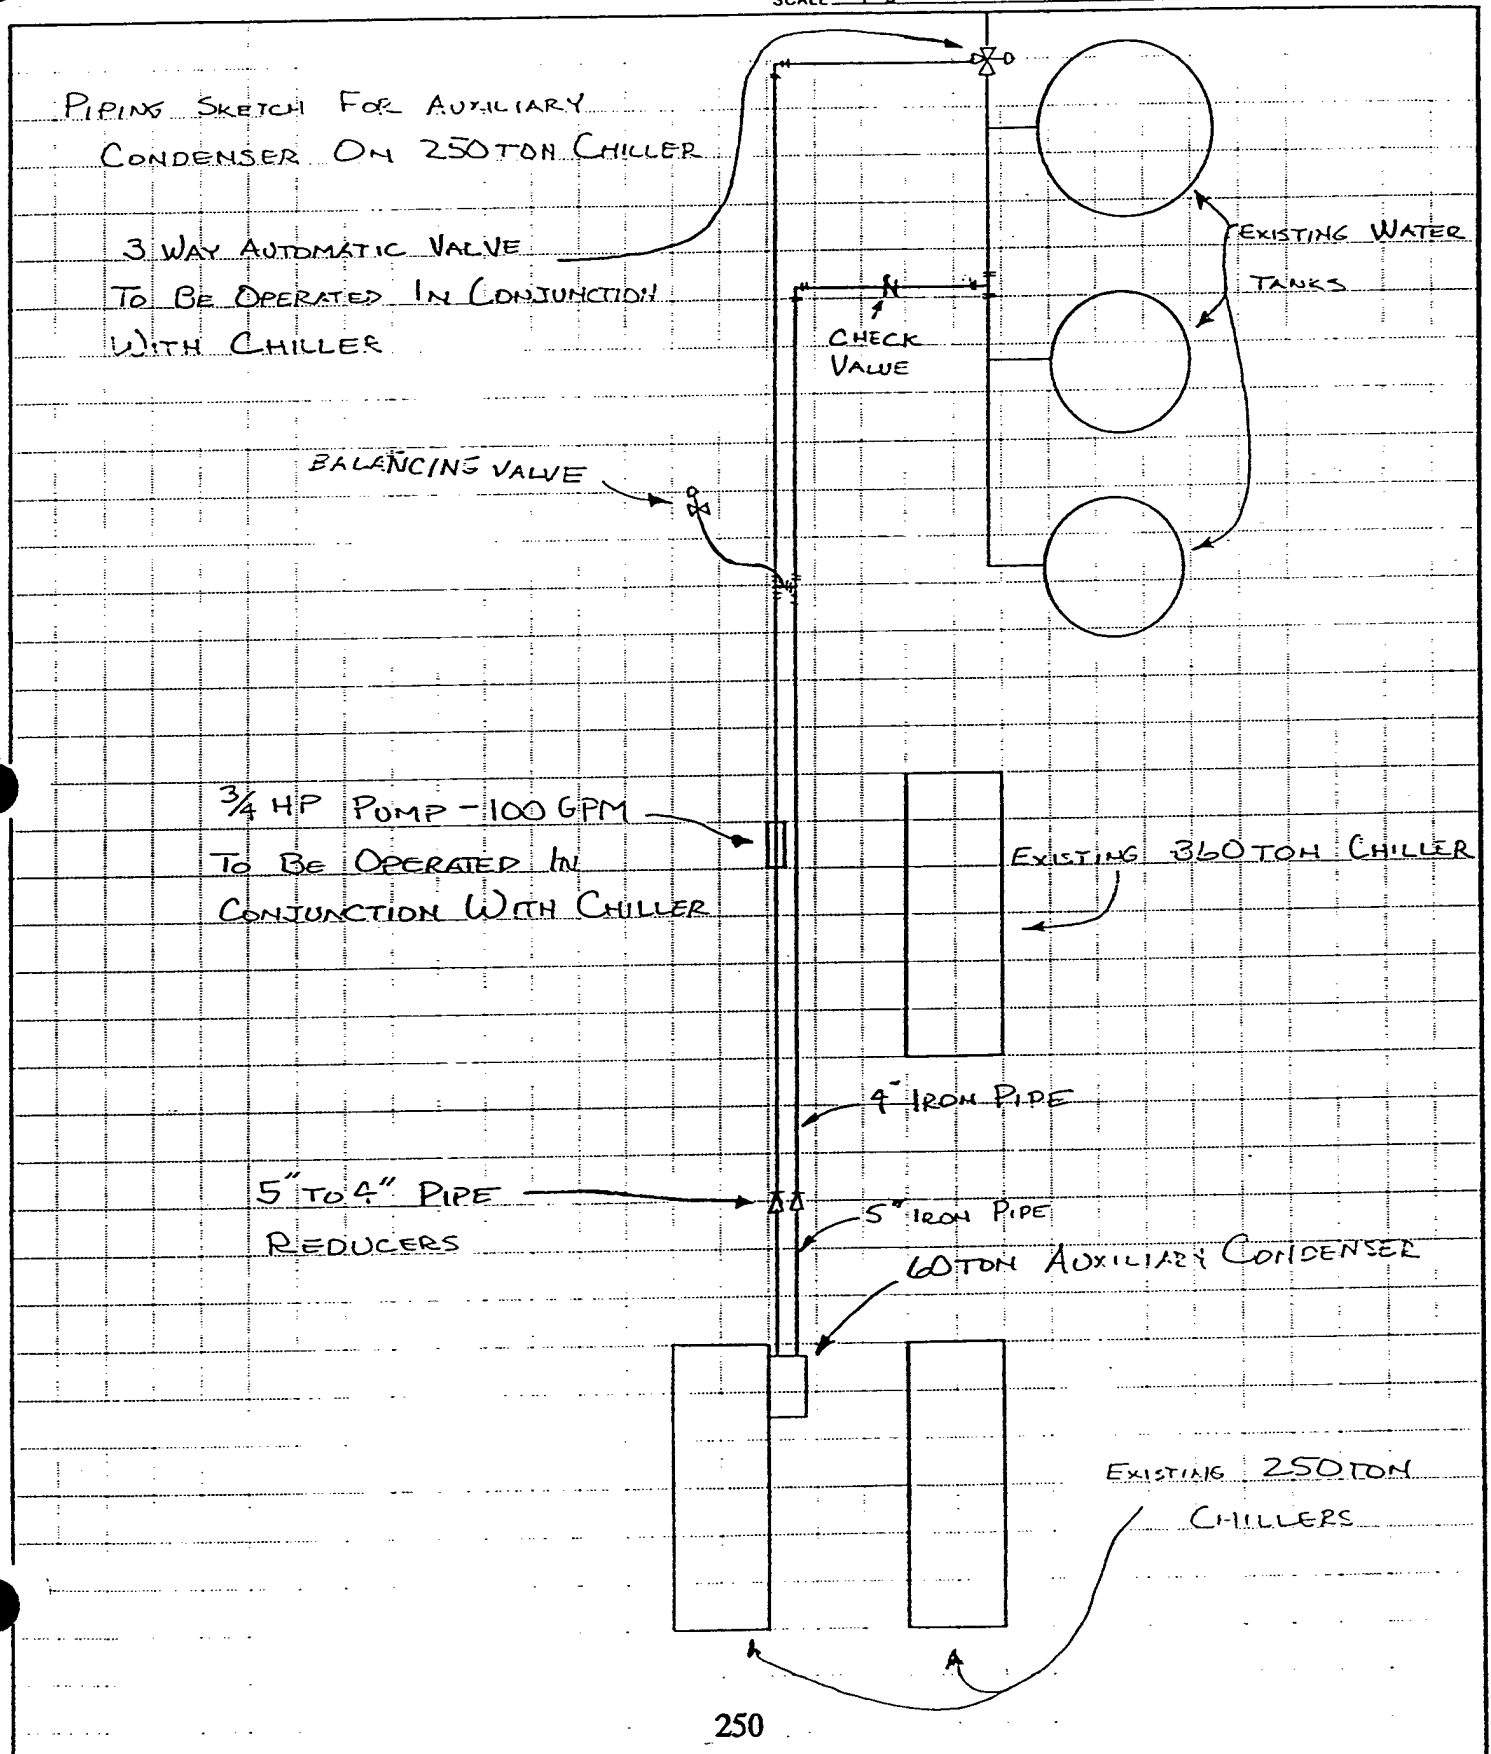 SCALE
PIPING SKETCH FOR AUXILIARY
CONDENSER ON 250 TON CHILLER
3 WAY AUTOMATIC VALVE
TO BE OPERATED IN CONJUNCTION
WITH CHILLER
EXISTING WATER
TANKS
CHECK
VALUE
BALANCING VALVE
3/4 HP PUMP - 100 GPM
TO BE OPERATED IN
CONJUNCTION WITH CHILLER
EXISTING 360 TON CHILLER
4" IRON PIPE
5" TO 4" PIPE
REDUCERS
5" IRON PIPE
60 TON AUXILIARY CONDENSER
EXISTING 250 TON
CHILLERS
250